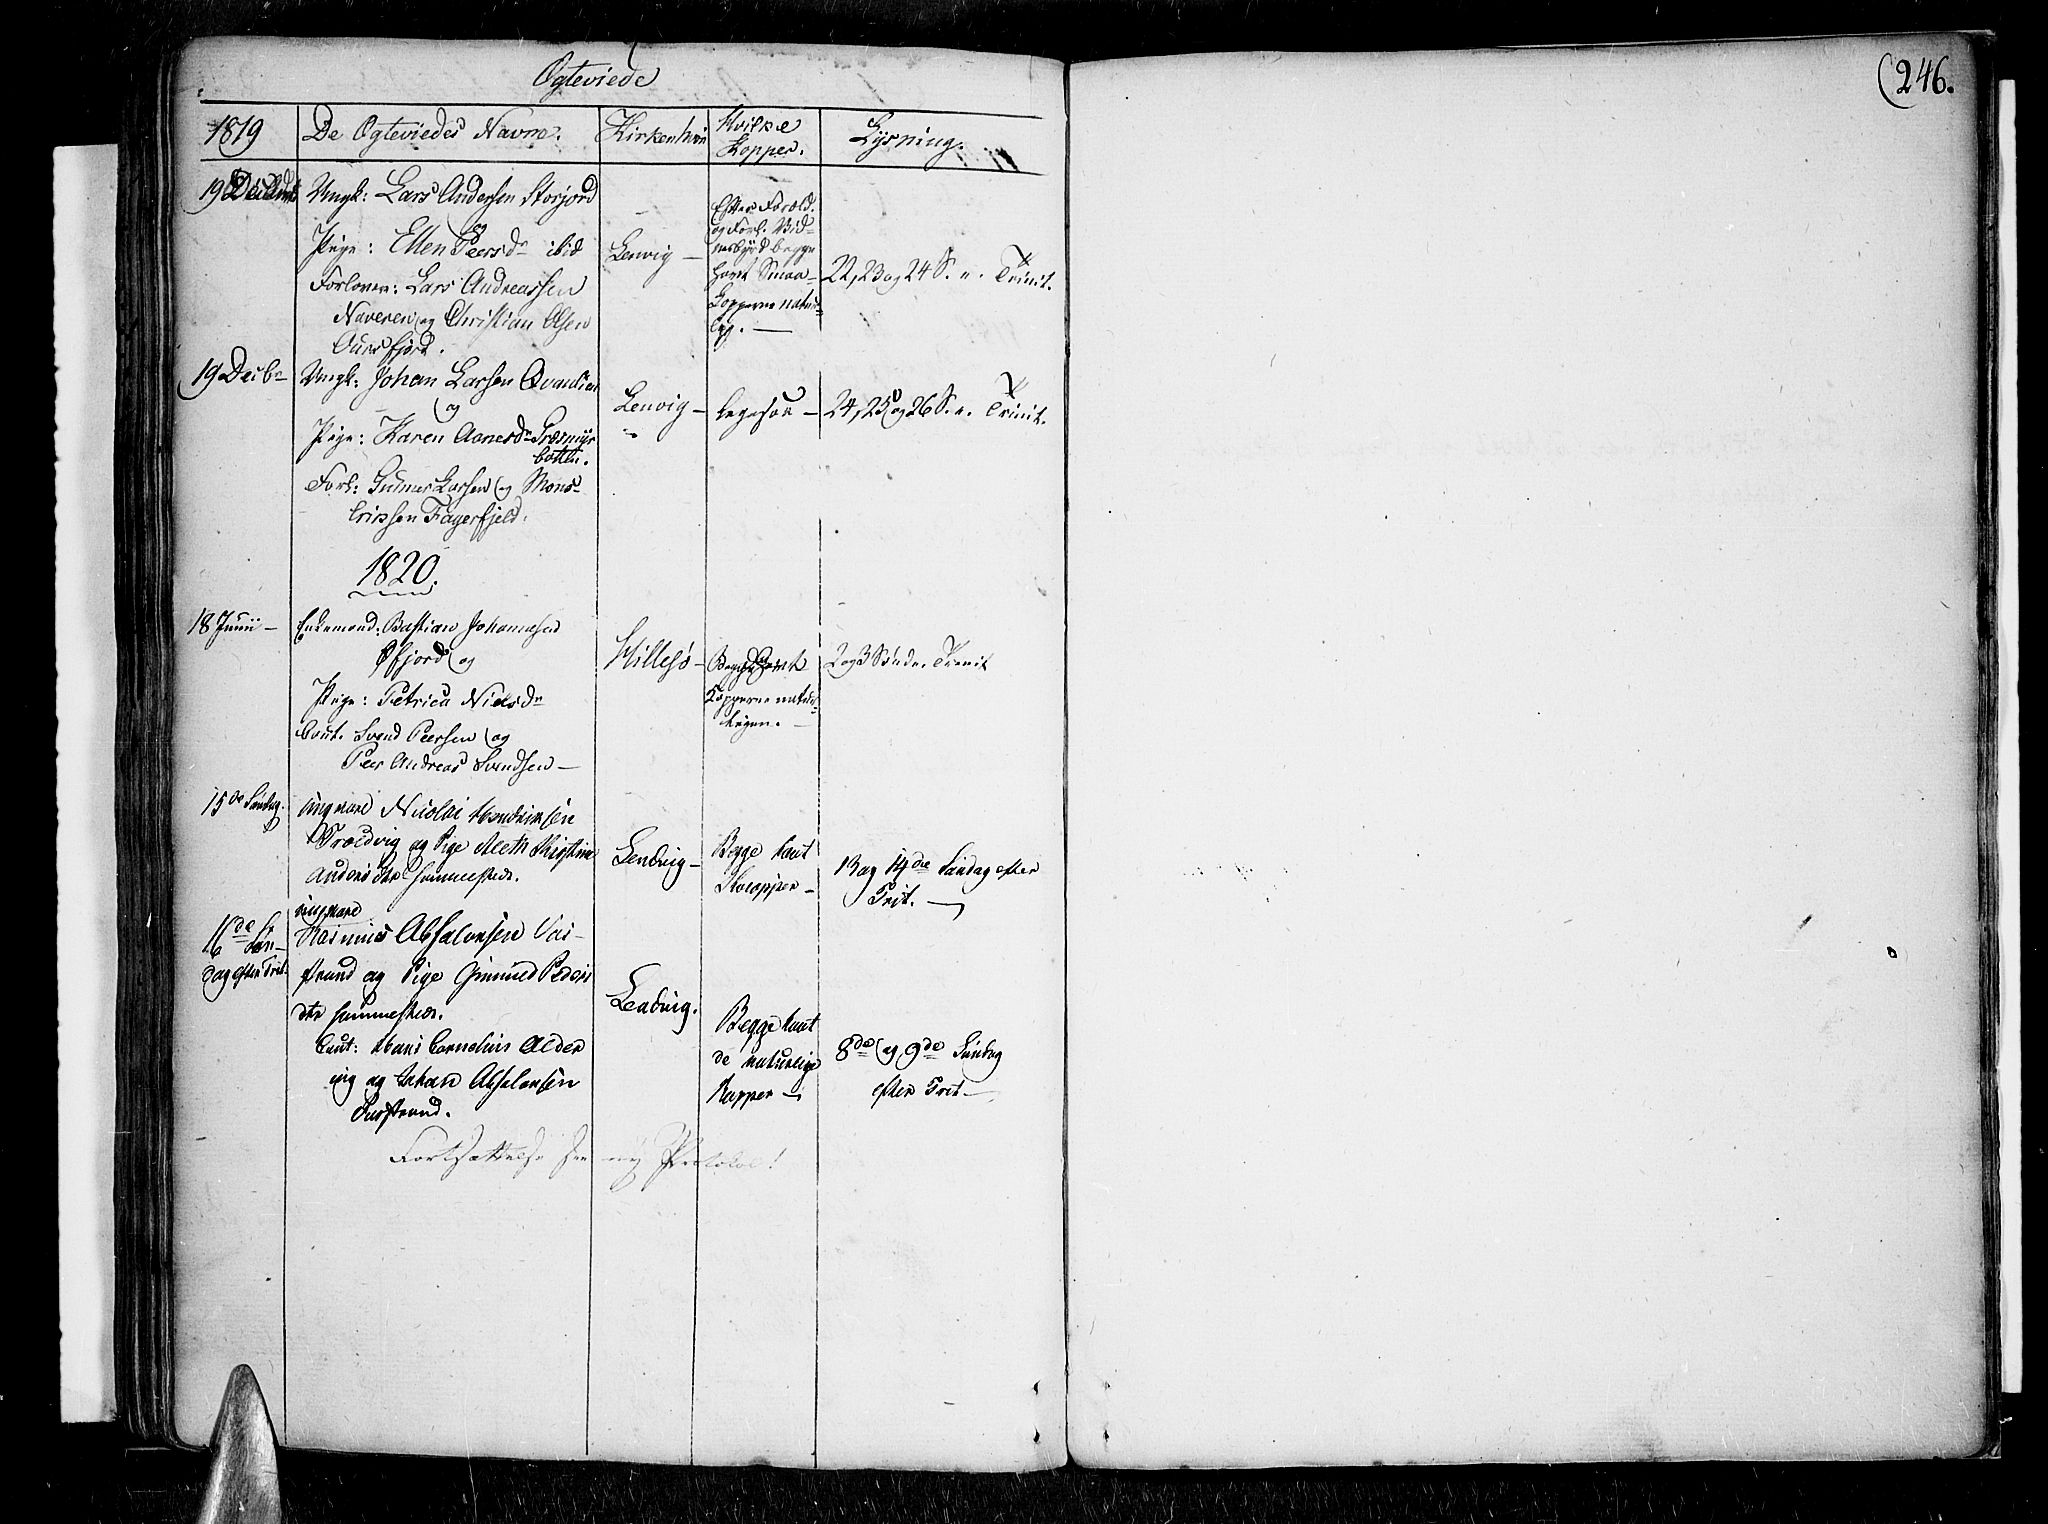 Ogteviede
(246.
1819 De Ogteviedes Navne. Kirkenhvor Hvilke Kopper. Lysning.
19 Decembr
Ungk: Lars Andersen Storjord
og
Pige: Ellen Peersdr ibid
Forlover: Lars Andreassen
Naveren og Christian Olsen
Auersfjord.
Lenvig —
Efter Foræld.
og Forl. Vid-
nesbyrd begge
havt Smaa-
Kopperne natur-
lig. —
22, 23 og 24 S. e. Trinit.
19 Decbr
Ungk: Johan Larsen
og
Pige: Karen Aanesdr Græsmyr
botten.
Forl: Gunner Larsen og Mons
Ericksen Fagerfjeld.
Lenvig —
ligesaa —
24, 25 og 26 S. e. Trinit.
1820.
18 Junii —
Enkemand: Bastian Johannesen
Øfjord og
Pige: Petrica Nielsdr
Caut. Svend Peersen og
Peer Andreas Svendsen —
Hillesø —
Begge havt
Kopperne natur-
ligen. —
2 og 3 Søndr. Trinit
15de Søndag.
Ungkarl Nicolai Hendriksen
Trældvig og Pige Aleth Kirstine
Anders dtr sammesteds.
Lendvig —
Begge havt
Kopper —
13 og 14de Søndag efter
Trit. —
16de Søn-
dag efter Trit.
Ungkarl
Rasmus Absalonsen
strand og Pige Gunnild Peders
dtr sammesteds.
Caut: Hans Cornelius Alder
ing og Johan Absalonsen
Lendvig.
Begge havt
de naturlige
Kopper —
8de og 9de Søndag
efter Trit —
Fortsættelse See ny Protokol!